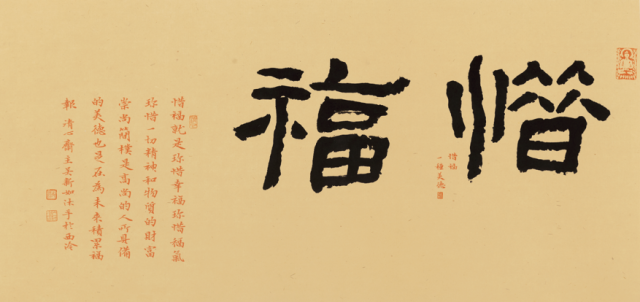 惜福
惜福
一種美德
惜福就是珍惜幸福珍惜福氣
珍惜一切精神和物質的財富
崇尚簡樸是高尚的人所具備
的美德也是在為未來積累福
報 清心齋主吳新如手於西泠